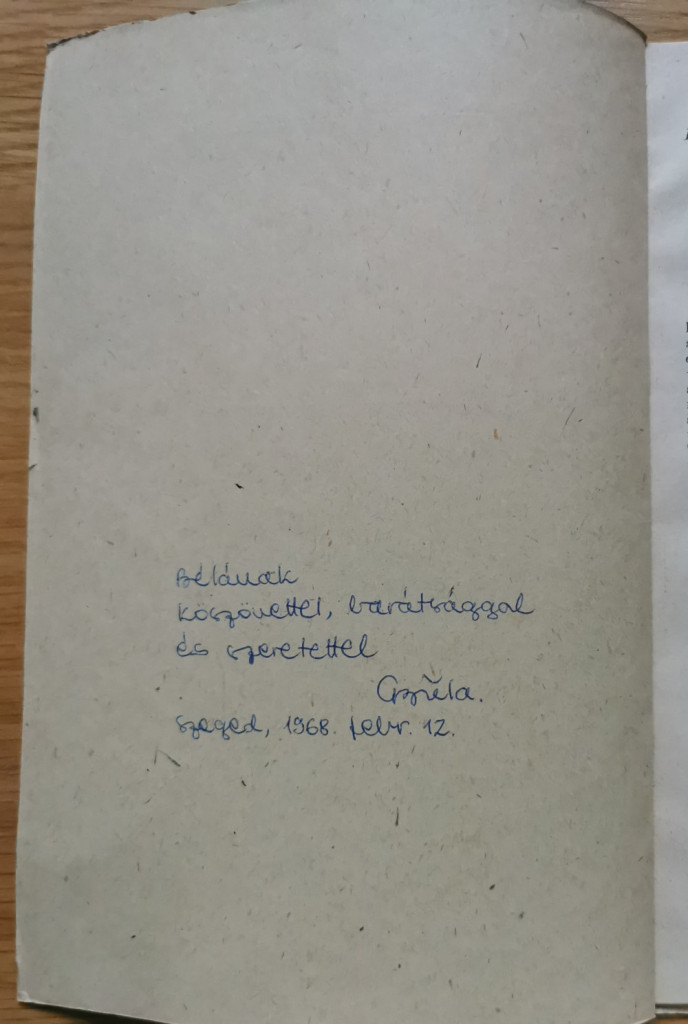 Bélának
köszönettel, barátsággal
és szeretettel
Gyula.
Szeged, 1968. febr. 12.